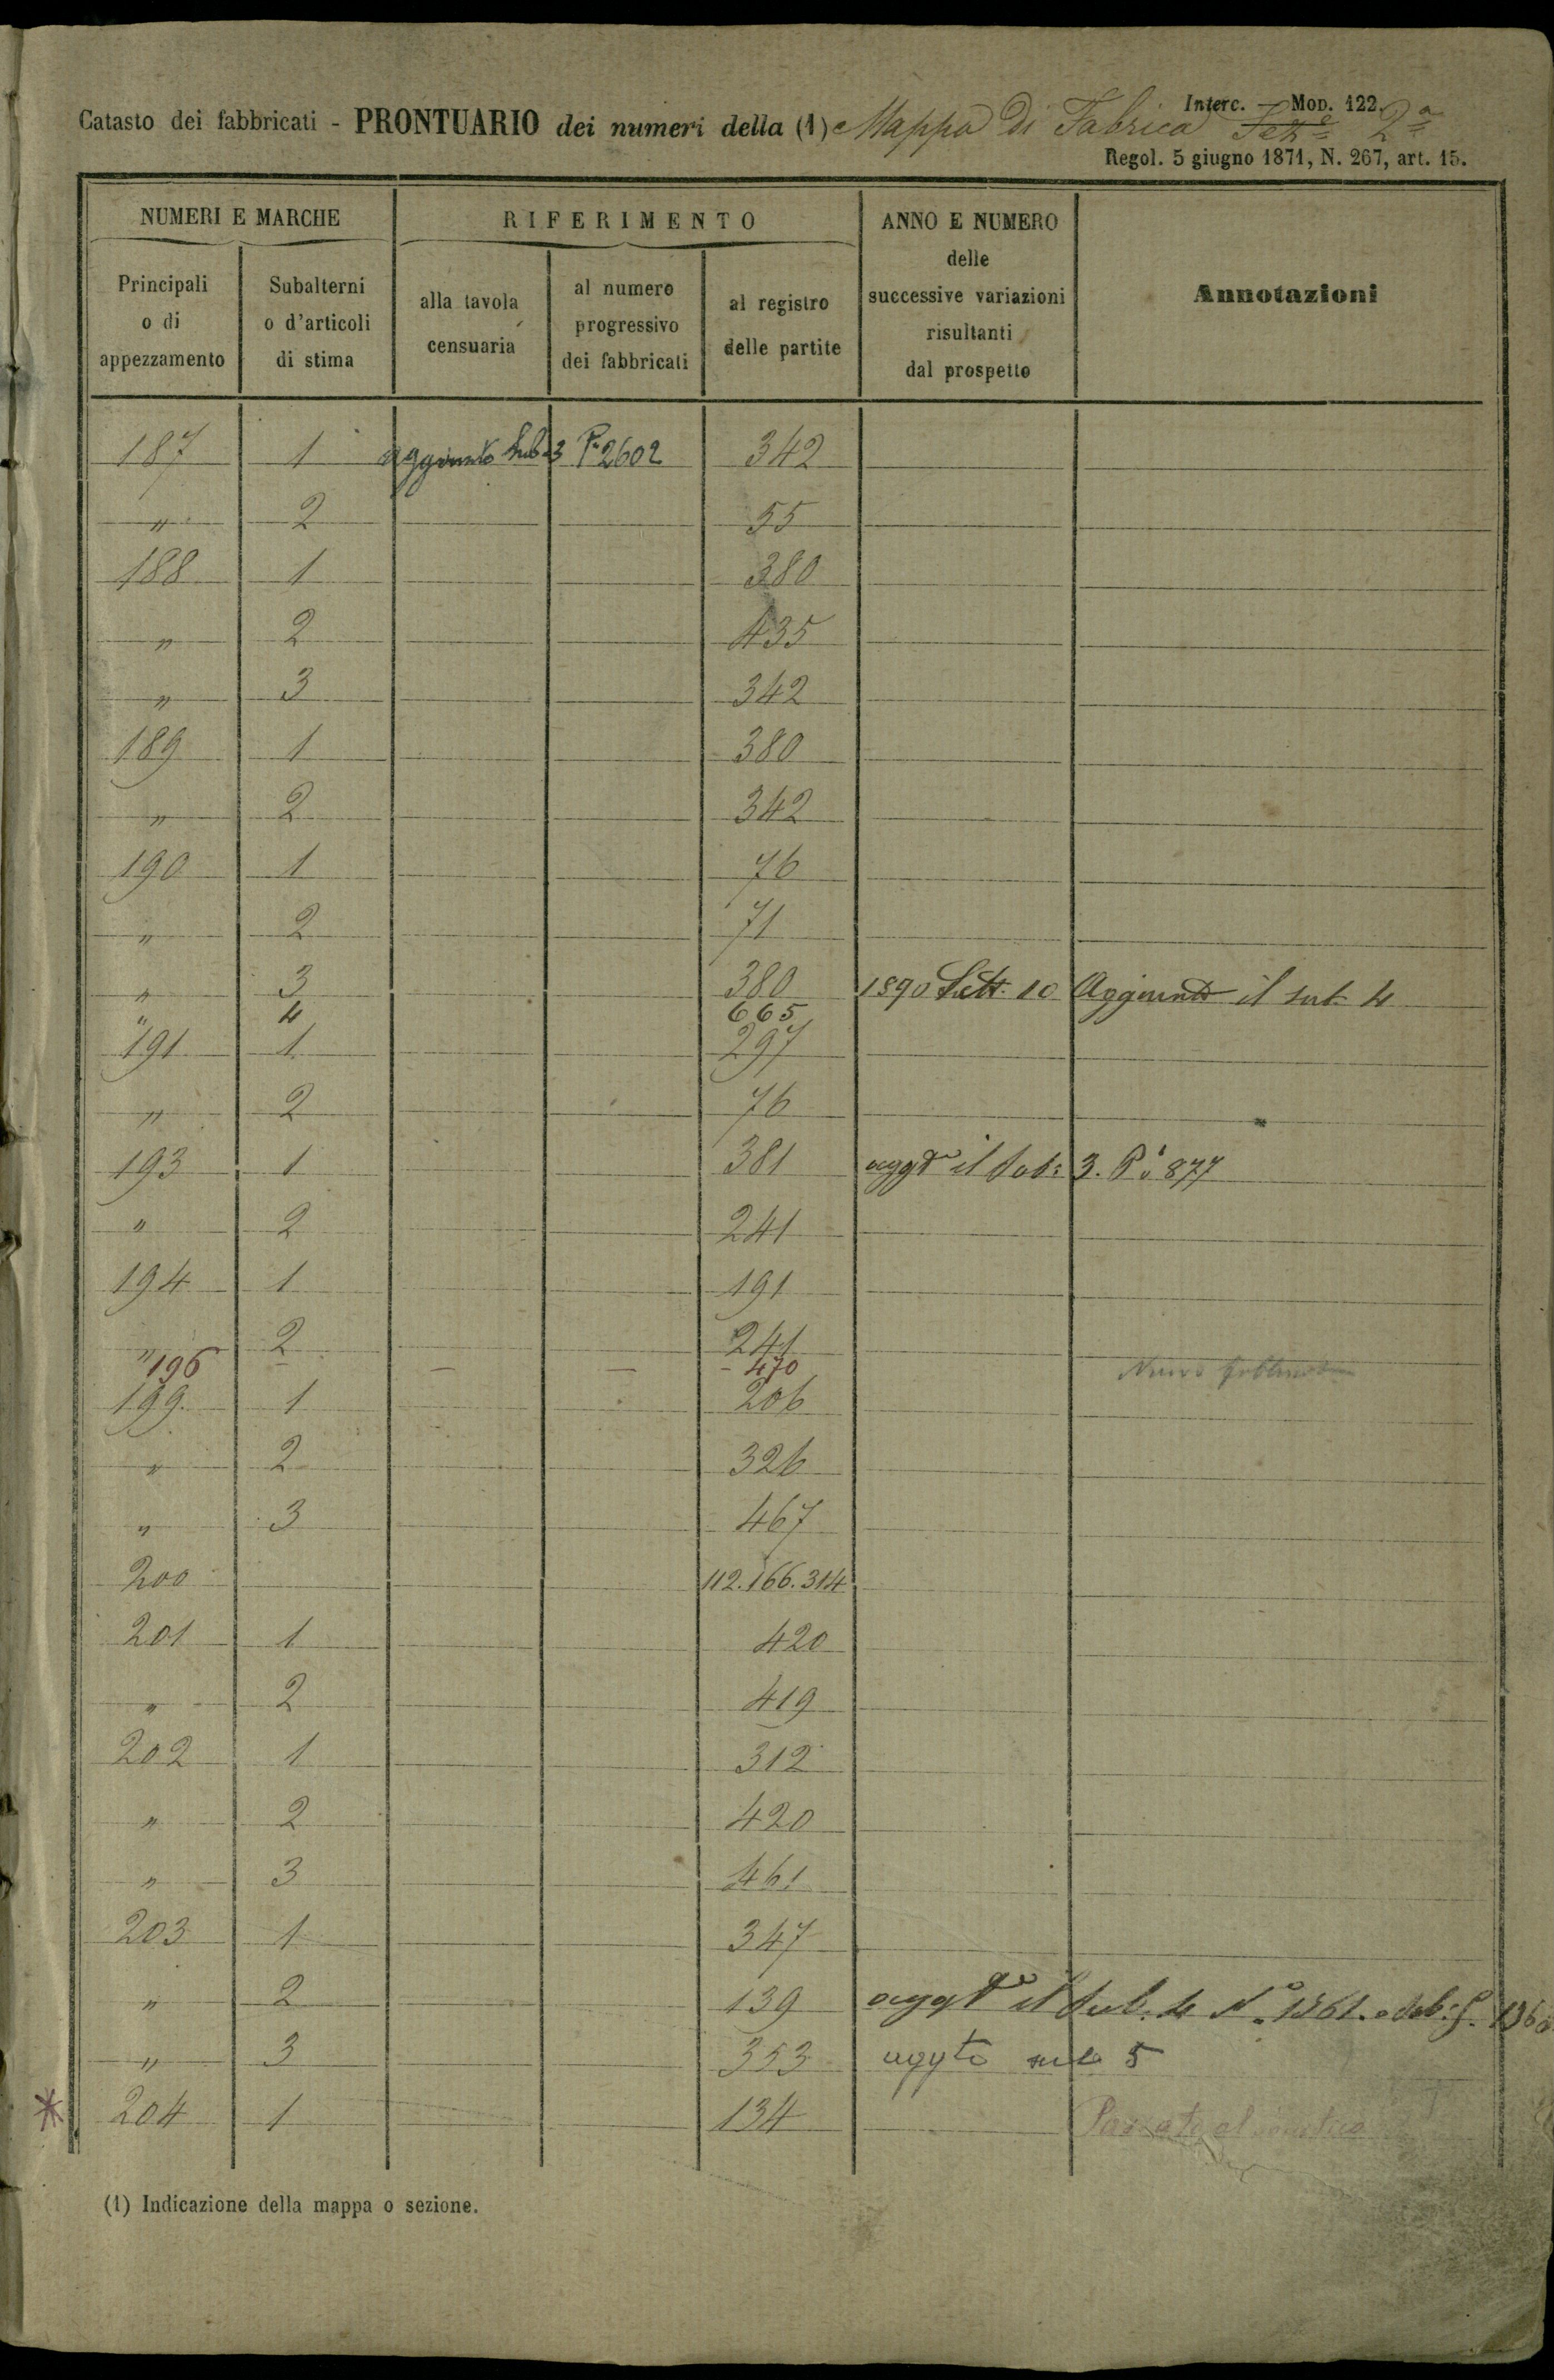 Interc. — Mod. 122.
Catasto dei fabbricati - PRONTUARIO dei numeri della (1) Mappa di Fabrica Sez.e 2a
Regol. 5 giugno 1871, N. 267, art. 15.
NUMERI E MARCHE RIFERIMENTO ANNO E NUMERO delle successive variazioni risultanti dal prospetto Annotazioni
Principali o di appezzamento Subalterni o d'articoli di stima alla tavola censuaria al numero progressivo dei fabbricati al registro delle partite
187 1 aggiunto Sub. 3 P. 2602 342
" 2 55
188 1 380
" 2 435
" 3 342
189 1 380
" 2 342
190 1 76
" 2 71
" 3 380 1890 Lett. 10 Aggiunto il sub. 4
" 4 665
191 1 297
" 2 76
193 1 381 aggto il sub: 3. P. 877
" 2 241
194 1 191
" 2 241
196 — — — 470 Nuovo
199 1 206
" 2 326
" 3 467
200 112.166.314
201 1 420
" 2 419
202 1 312
" 2 420
" 3 461
203 1 347
" 2 139 aggto il sub. 4 N.° 1361.
" 3 353 aggto sub 5
* 204 1 134 Passato al
(1) Indicazione della mappa o sezione.